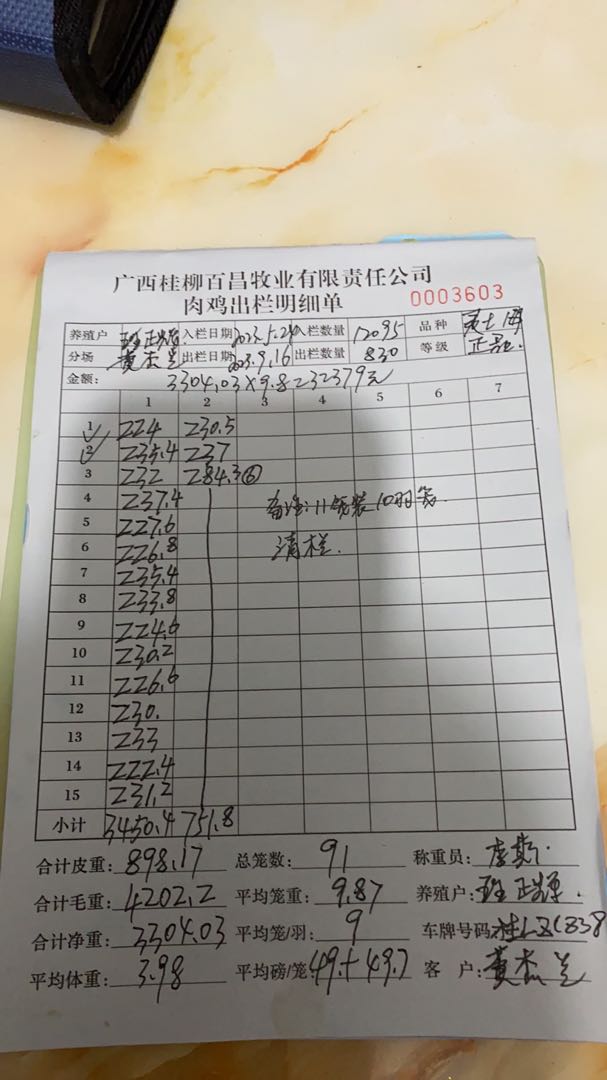 广西桂柳百昌牧业有限责任公司
肉鸡出栏明细单
0003603
养殖户 班正辉 入栏日期 2023.5.24 入栏数量 12095 品种
分场 黄杰兰 出栏日期 2023.9.16 出栏数量 830 等级 正品
金额: 3304.03×9.8=32379元
1 2 3 4 5 6 7
1 224 230.5
2 235.4 237
3 232 284.3⑥
4 237.4 备注:11笼装10羽笼.
5 227.6
6 226.8 清栏.
7 235.4
8 233.8
9 224.6
10 230.2
11 226.6
12 230.
13 233
14 222.4
15 231.2
小计 3450.4 751.8
合计皮重: 898.17 总笼数: 91 称重员:
合计毛重: 4202.2 平均笼重: 9.87 养殖户: 班正辉.
合计净重: 3304.03 平均笼/羽: 9 车牌号码
平均体重: 3.98 平均磅/笼 49.+49.7 客户: 黄杰兰